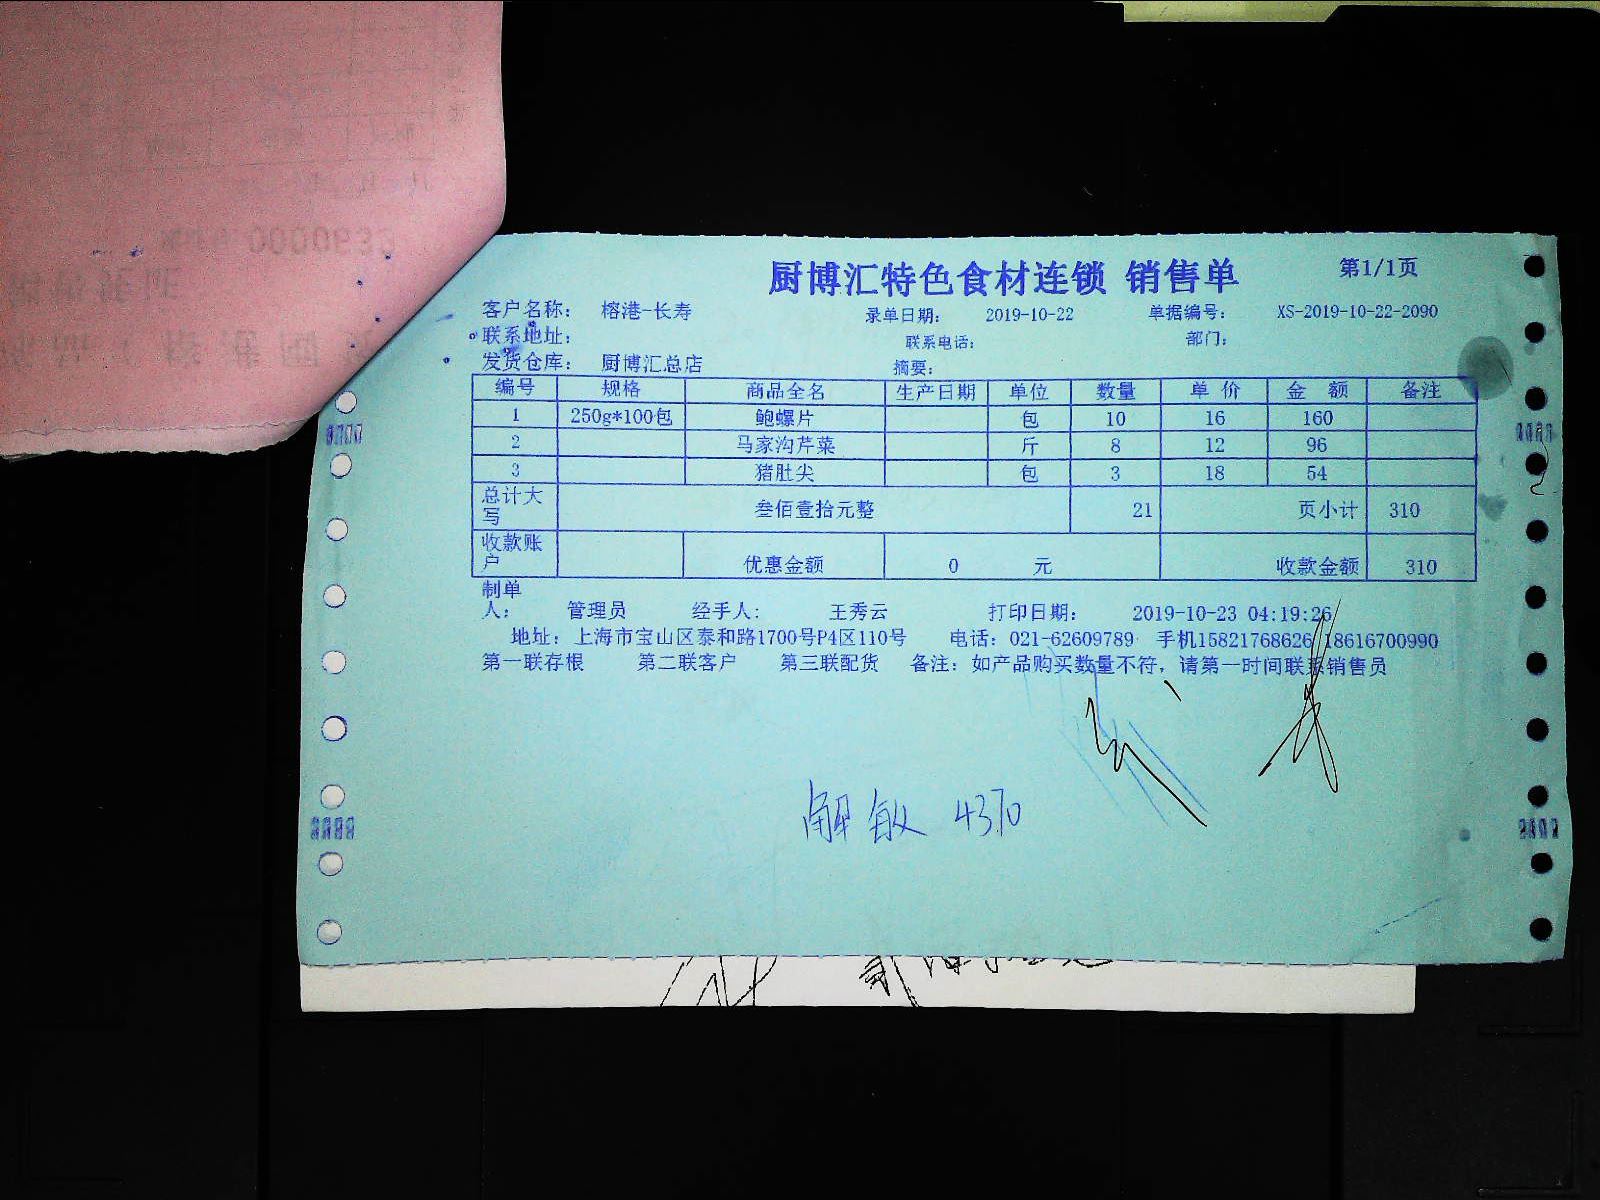 厨博汇特色食材连锁 销售单 第1/1页
客户名称: 榕港-长寿 录单日期: 2019-10-22 单据编号: XS-2019-10-22-2090
联系地址: 联系电话: 部门:
发货仓库: 厨博汇总店 摘要:
编号 规格 商品全名 生产日期 单位 数量 单价 金额 备注
1 250g*100包 鲍螺片 包 10 16 160
2 马家沟芹菜 斤 8 12 96
3 猪肚尖 包 3 18 54
总计大写 叁佰壹拾元整 21 页小计 310
收款账户 优惠金额 0 元 收款金额 310
制单人: 管理员 经手人: 王秀云 打印日期: 2019-10-23 04:19:26
地址: 上海市宝山区泰和路1700号P4区110号 电话: 021-62609789 手机15821768626 18616700990
第一联存根 第二联客户 第三联配货 备注: 如产品购买数量不符, 请第一时间联系销售员
解敏 4370